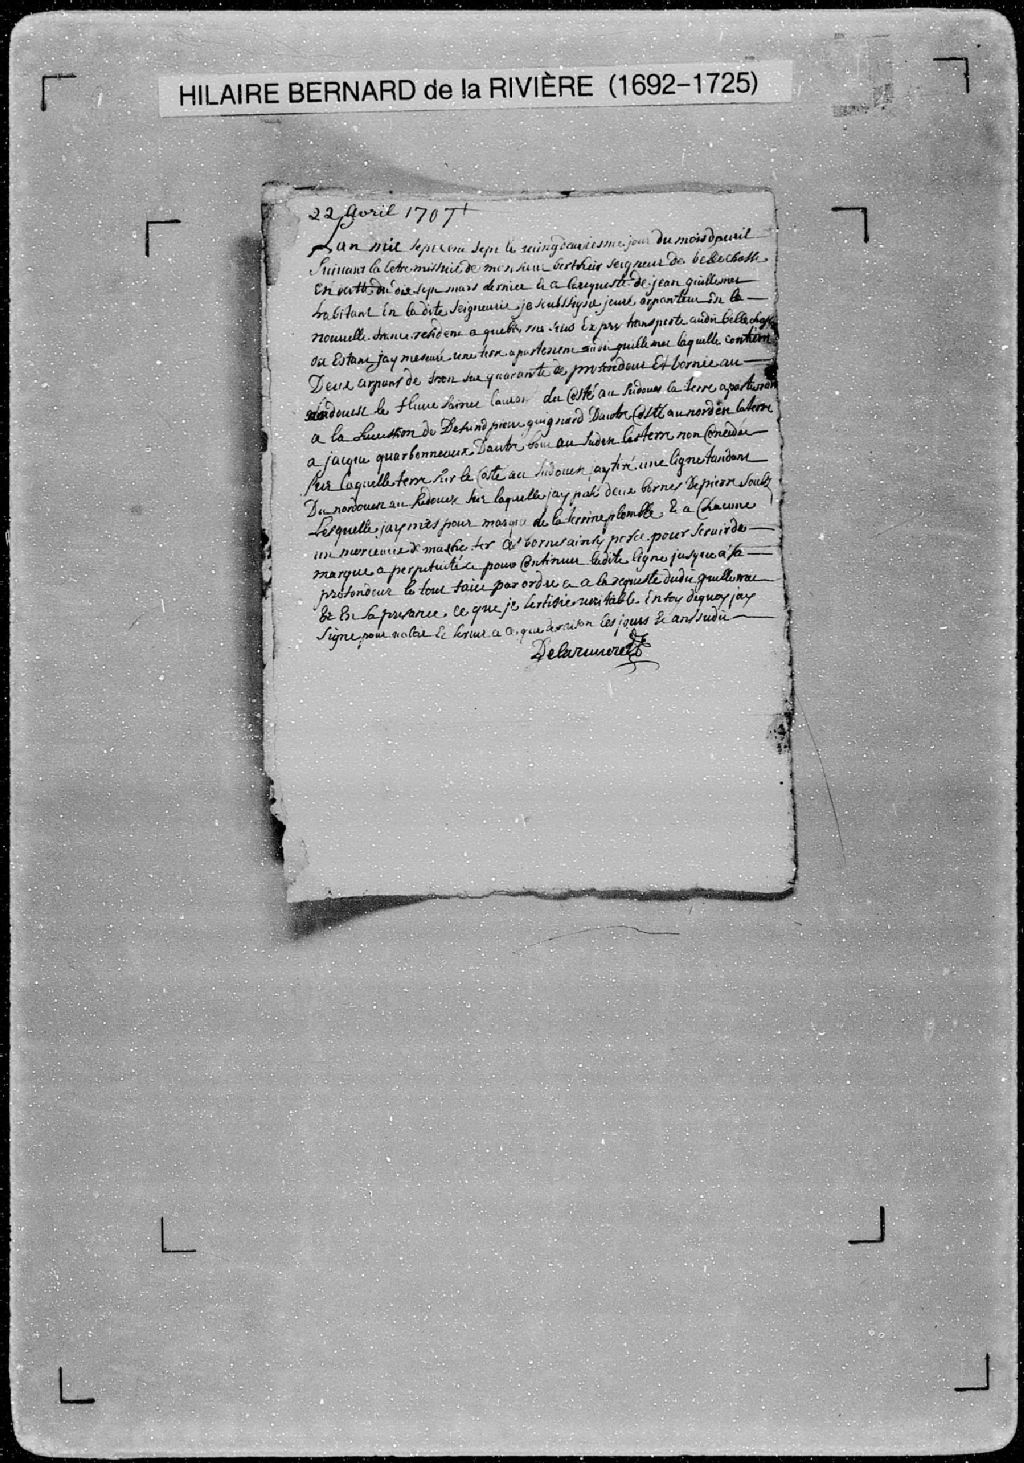 HILAIRE BERNARD de la RIVIÈRE (1692–1725)
22 Avril 1707
Lan mil sept cens sept le vingdeuxiesme jour du mois davril
Suivant la letre missive de monsieur berthier seigneur de bellechasse
En datte du dix sept mars dernier et a la requeste de jean guillemet
habitant En la dite seigneurie je soubssigné juré arpanteur En la
nouvelle france resident a quebec me suis Expres transporté audit bellechasse
ou Estant jay mesuré une terre apartenente audit guillemet laquelle contient
Deux arpans de front sur quarante de profondeur Et bornée au
nordouest le fleuve sainct Lauran du Costé au sudouest la terre apartenant
a la sucession de Defund pierre guignard Dautre Costé au nordest la terre
a jacque quarbonneaux Dautre bout au sudest les terre non Concedée
sur laquelle terre sur le Costé au sudouest jay tiré une ligne tandant
Du nordouest au sudest sur laquelle jay posé deux bornes De pierre soubz
Lesquelle jay mis pour marque de la terrine plombée & a Chacune
un morceaux de mache fer Ces bornes ainsy posée pour servir de
marque a perpetuité & pour Continuer ladite ligne jusque a sa
profondeur le tout faict par ordre & a la requeste dudit guillemet
& En sa presence ce que je Certifie veritable En foy dequoy jay
signé pour valoir & servir a ce que de raison les jours & an susdit
Delariviere